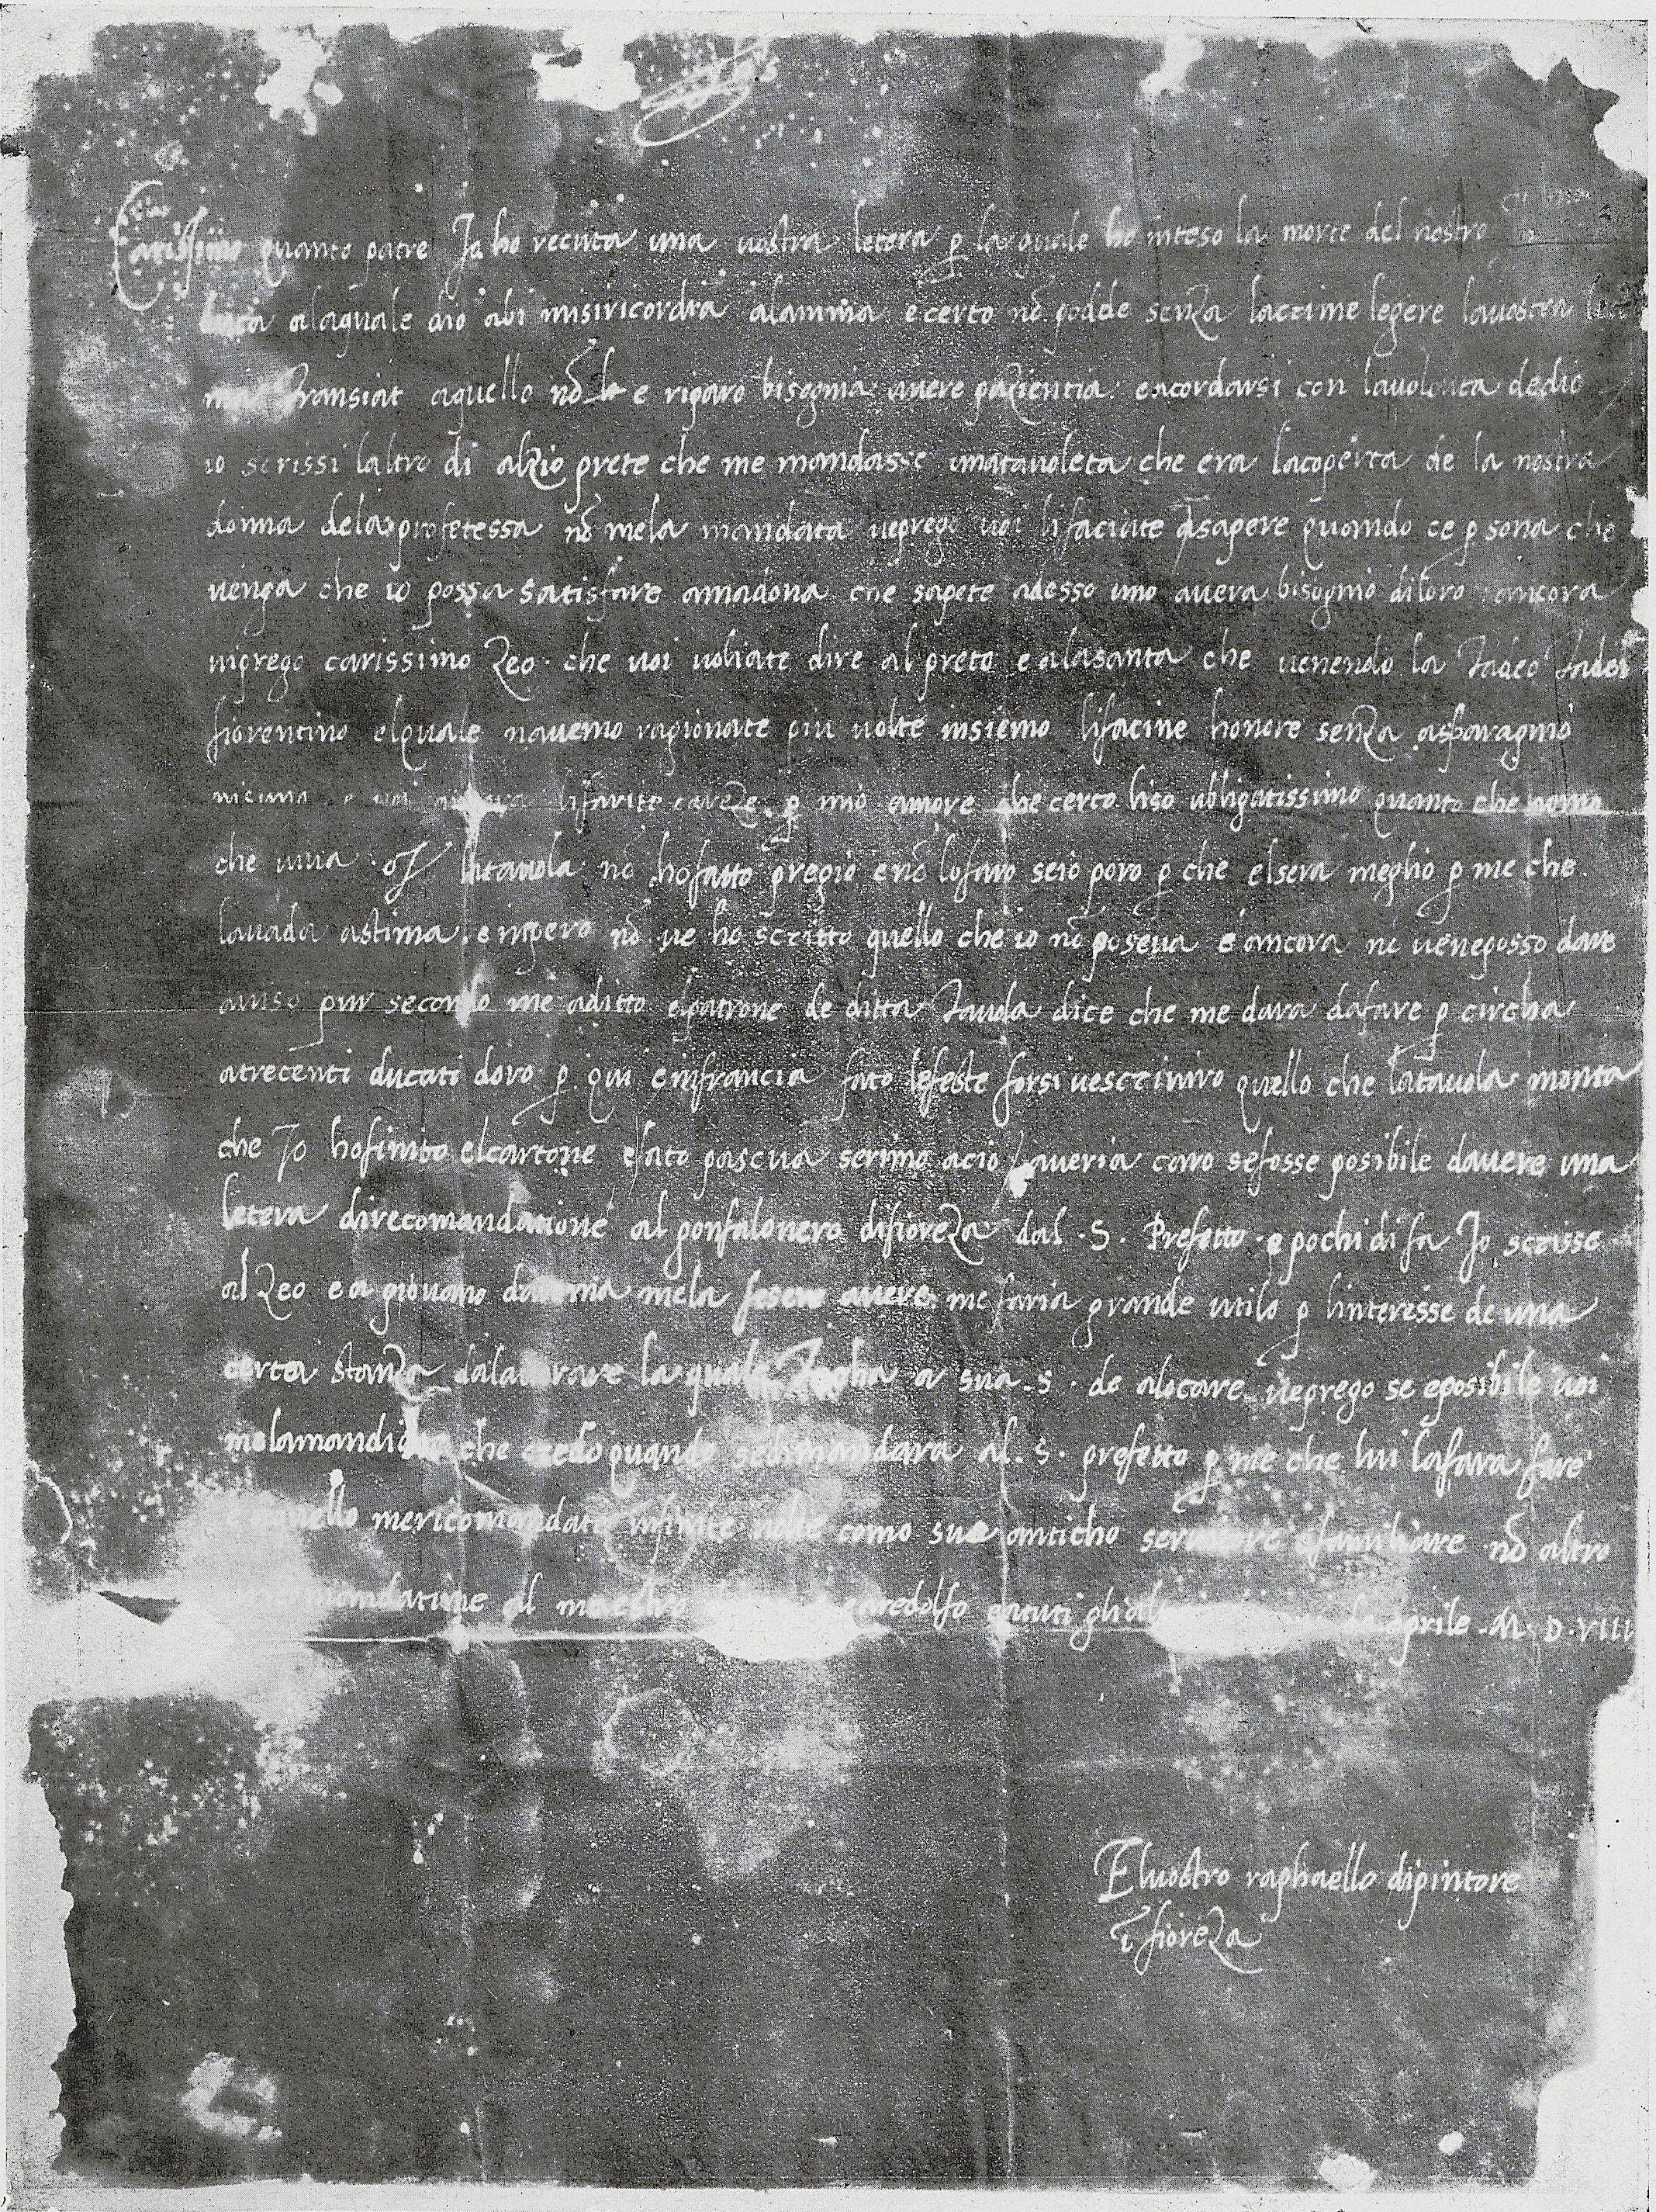 Carissimo quanto patre Io ho receuta una uostra letera p la quale ho inteso la morte del nostro
duca alaquale dio abi misiricordia alanima e certo nō podde senza lacrime legere lauostra
ma transiat aquello nō e riparo bisognia auere pazientia ẽacordarsi con lauolonta dedio
io scrissi laltro di alzio prete che me mandasse unatauoleta che era lacoperta de la nostra
donna dela profetessa nō mela mandata ueprego uoi lifaciate a sapere quando ce p sona che
uenga che io possa satisfare amadona che sapete adesso uno auera bisognio diloro ancora
uiprego carissimo Zeo che uoi uoliate dire al preto e alasanta che uenendo la Tadeo Tadei
fiorentino elquale nauemo ragionate piu uolte insiemo lifacine honore senza asparagnio
nisuno e uoi ancora lifarite careze p mio amore che certo liso ubligatissimo quanto che uomo
che uiua p latauola nō ho fatto pregio e nō lofaro seio poro p che elsera meglio p me che
lauada astima e inpero nō ue ho scritto quello che io nō poseua e ancora nō ueneposso dare
auiso pur secondo me aditto elpatrone de ditta Tauola dice che me dara dafare p circha
atrecenti ducati doro p qui e infrancia fato lefeste forsi uescriuiro quello che latauola monta
che Io hofinito elcartone e fato pascua serimo acio aueria caro sefosse posibile dauere una
letera direcomandatione al gonfalonero difiorenza dal .S. Prefetto e pochi di fa Io scrisse
al Zeo e a giouano da mela fesero auere me faria grande utilo p linteresse de una
certa stanza dalauorare la quale Tocha a sua .s. de alocare ueprego se eposibile uoi
melamandiate che credo quando sedimandara al .S. prefetto p me che lui lafara fare
e aquello mericomandate infinite uolte como suo anticho seruitore e familiare nō altro
al maestro redolfo e atuti gliale aprile .M. D. VIII
El uostro raphaello dipintore
ī fiorenza